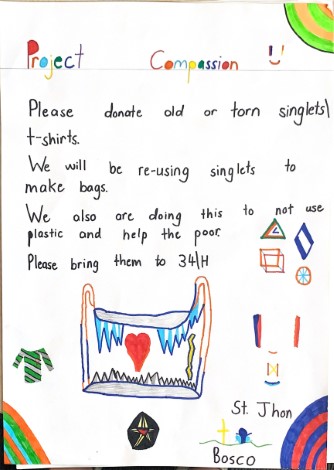 Project Compassion
Please donate old or torn singlets\
t-shirts.
We will be re-using singlets to
make bags.
We also are doing this to not use
plastic and help the poor.
Please bring them to 34\H
St. Jhon
Bosco